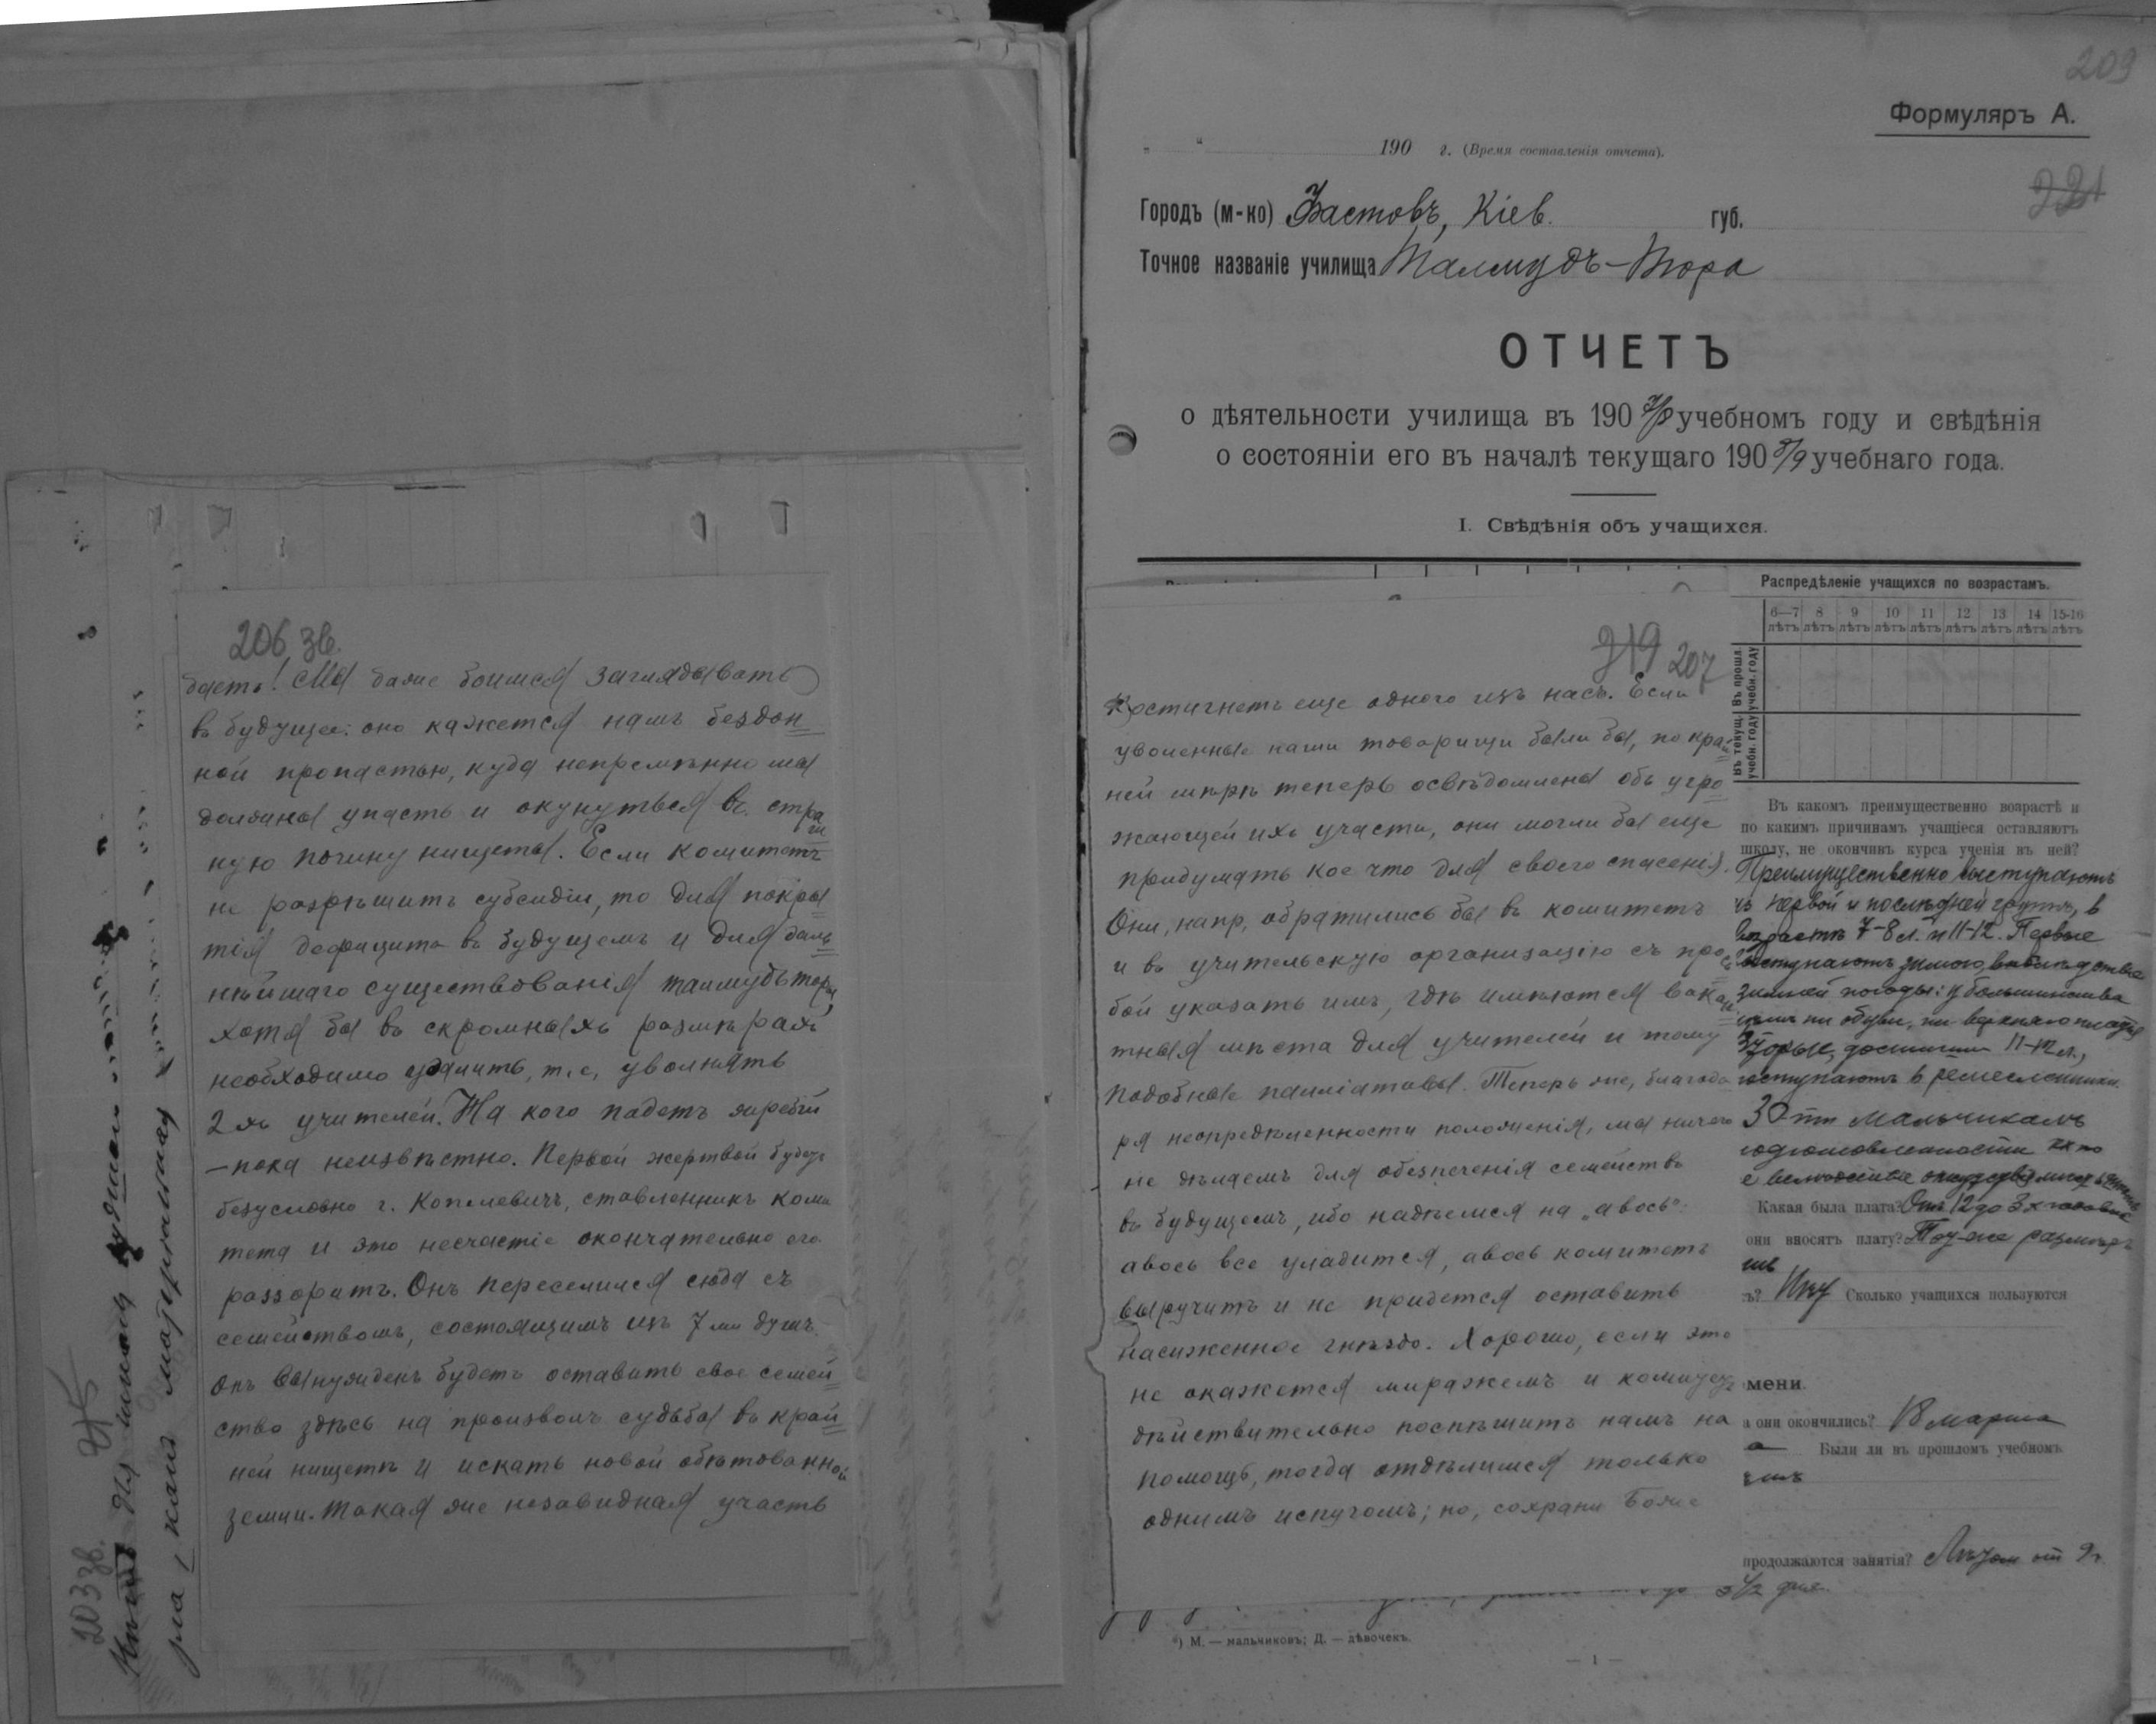 206 зв.
баеть! Мы даже боимся заглядывать
в будущее: оно кажется намъ бездон
ной пропастью, куда непремѣнно мы
должны упасть и окунуться въ страш
ную пучину нищеты. Если комитетъ
не разрѣшитъ субсидіи, то для покры
тія дефицита въ будущемъ и для даль
нѣйшаго существованія талмудъ торы,
хотя бы въ скромныхъ размѣрахъ
необходимо удалить, т.е. уволнять
2 хъ учителей. На кого падетъ жребій
— пока неизвѣстно. Первой жертвой будетъ
безусловно г. Копелевичъ, ставленникъ коми
тета и это несчастіе окончательно его
раззоритъ. Онъ переселился сюда съ
семействомъ, состоящимъ изъ 7 ми душъ.
Онъ вынужденъ будетъ оставить свое семей
ство здѣсь на произволъ судьбы въ край
ней нищетѣ и искать новой обѣтованной
земли. Такая же незавидная участь
203 зв.
209
Формуляръ А.
190 г. (Время составленія отчета).
221
Городъ (м-ко) Фастовъ, Кіев. губ.
Точное названіе училища Талмудъ-Тора
ОТЧЕТЪ
о дѣятельности училища въ 190 7/8 учебномъ году и свѣдѣнія
о состояніи его въ началѣ текущаго 190 8/9 учебнаго года.
I. Свѣдѣнія объ учащихся.
219 207
постигнетъ еще одного изъ насъ. Если
уволенные наши товарищи были бы, по край
ней мѣрѣ теперь освѣдомлены объ угро
жающей ихъ участи, они могли бы еще
придумать кое что для своего спасенія.
Они, напр, обратились бы въ комитетъ
и въ учительскую организацію съ прось
бой указать имъ, гдѣ имѣются вакан
тныя мѣста для учителей и тому
подобные палліативы. Теперь же, благода
ря неопредѣленности положенія, мы ничего
не дѣлаемъ для обезпеченія семействъ
въ будущемъ, ибо надѣемся на „авось":
авось все уладится, авось комитетъ
выручитъ и не придется оставить
насиженное гнѣздо. Хорошо, если это
не окажется миражемъ и комитетъ
дѣйствительно поспѣшитъ намъ на
помощь, тогда отдѣлимся только
однимъ испугомъ; но, сохрани Боже
Распредѣленіе учащихся по возрастамъ.
6—7 лѣтъ 8 лѣтъ 9 лѣтъ 10 лѣтъ 11 лѣтъ 12 лѣтъ 13 лѣтъ 14 лѣтъ 15-16 лѣтъ
Въ прошл. учебн. году
Въ текущ. учебн. году
Въ каком преимущественно возрастѣ и
по какимъ причинамъ учащіеся оставляютъ
школу, не окончивъ курса ученія въ ней?
Преимущественно выступаютъ
изъ первой и послѣдней группъ, в
возрастѣ 7-8 л. и 11-12. Первые
выступаютъ зимою, вслѣдствіе
зимней погоды: у большинства
нѣтъ ни обуви, ни верхняго платья
Вторые, достигши 11-12 л.,
поступаютъ в ремесленники.
30-ти мальчикамъ
Какая была плата? Отъ 12 до 3х
они вносятъ плату? Тоу-же
ъ? Нѣт Сколько учащихся пользуются
мени.
а они окончились? 18 марта
Были ли въ прошломъ учебномъ
продолжаются занятія? Лѣтом от 9
*) М. — мальчиковъ; Д. — дѣвочекъ.
— 1 —